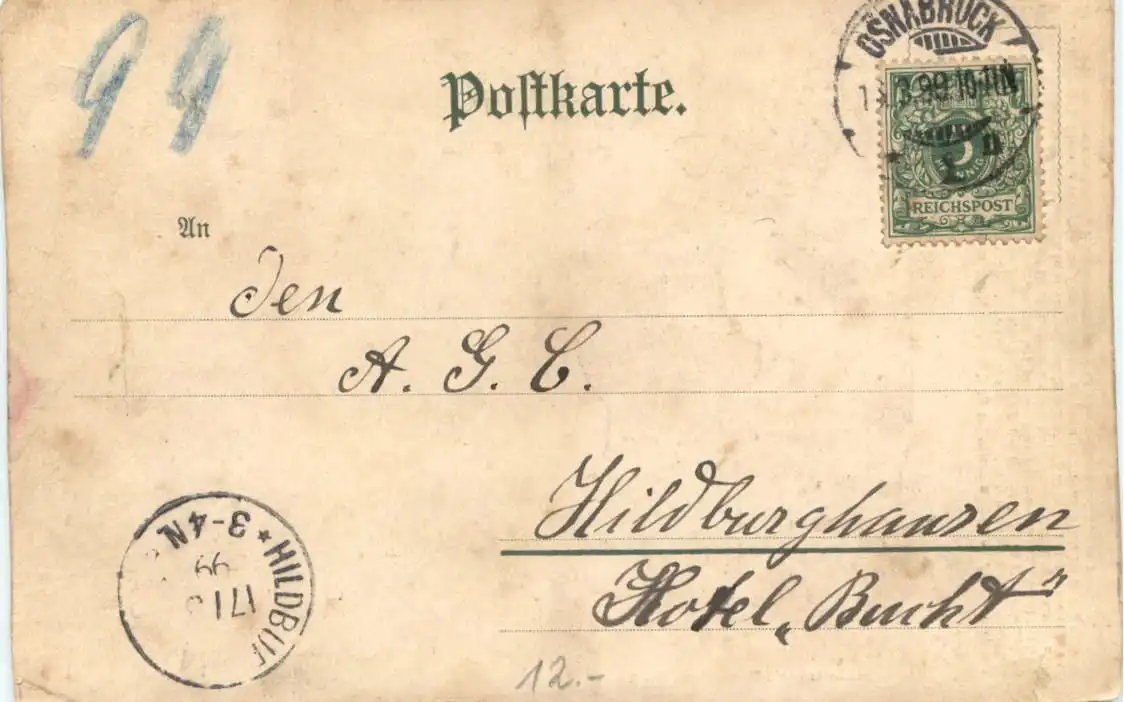 99
Postkarte.
OSNABRÜCK
99.10-11N
REICHSPOST
An
Den
A. G. C.
Hildburghausen
Hotel „Bucht“
HILDBUR
3-4N
17
99
12.-